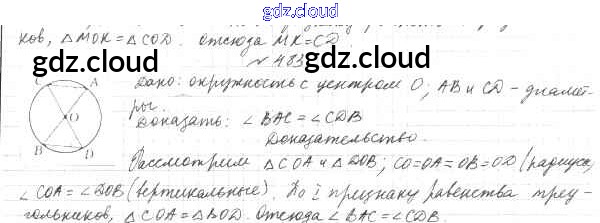 gdz.cloud
ков, △MOK = △COD. отсюда MK = CD.
gdz.cloud gdz.cloud
№ 483
Дано: окружность с центром O; AB и CD - диамет-
ры.
Доказать: ∠BAC = ∠CDB
Доказательство.
C A
O
B D
Рассмотрим △COA и △DOB; CO=OA=OB=OD (радиусы,
∠COA = ∠DOB (вертикальные). По I признаку равенства тре-
гольников, △COA = △BOD. Отсюда ∠BAC = ∠CDB.
gdz.cloud